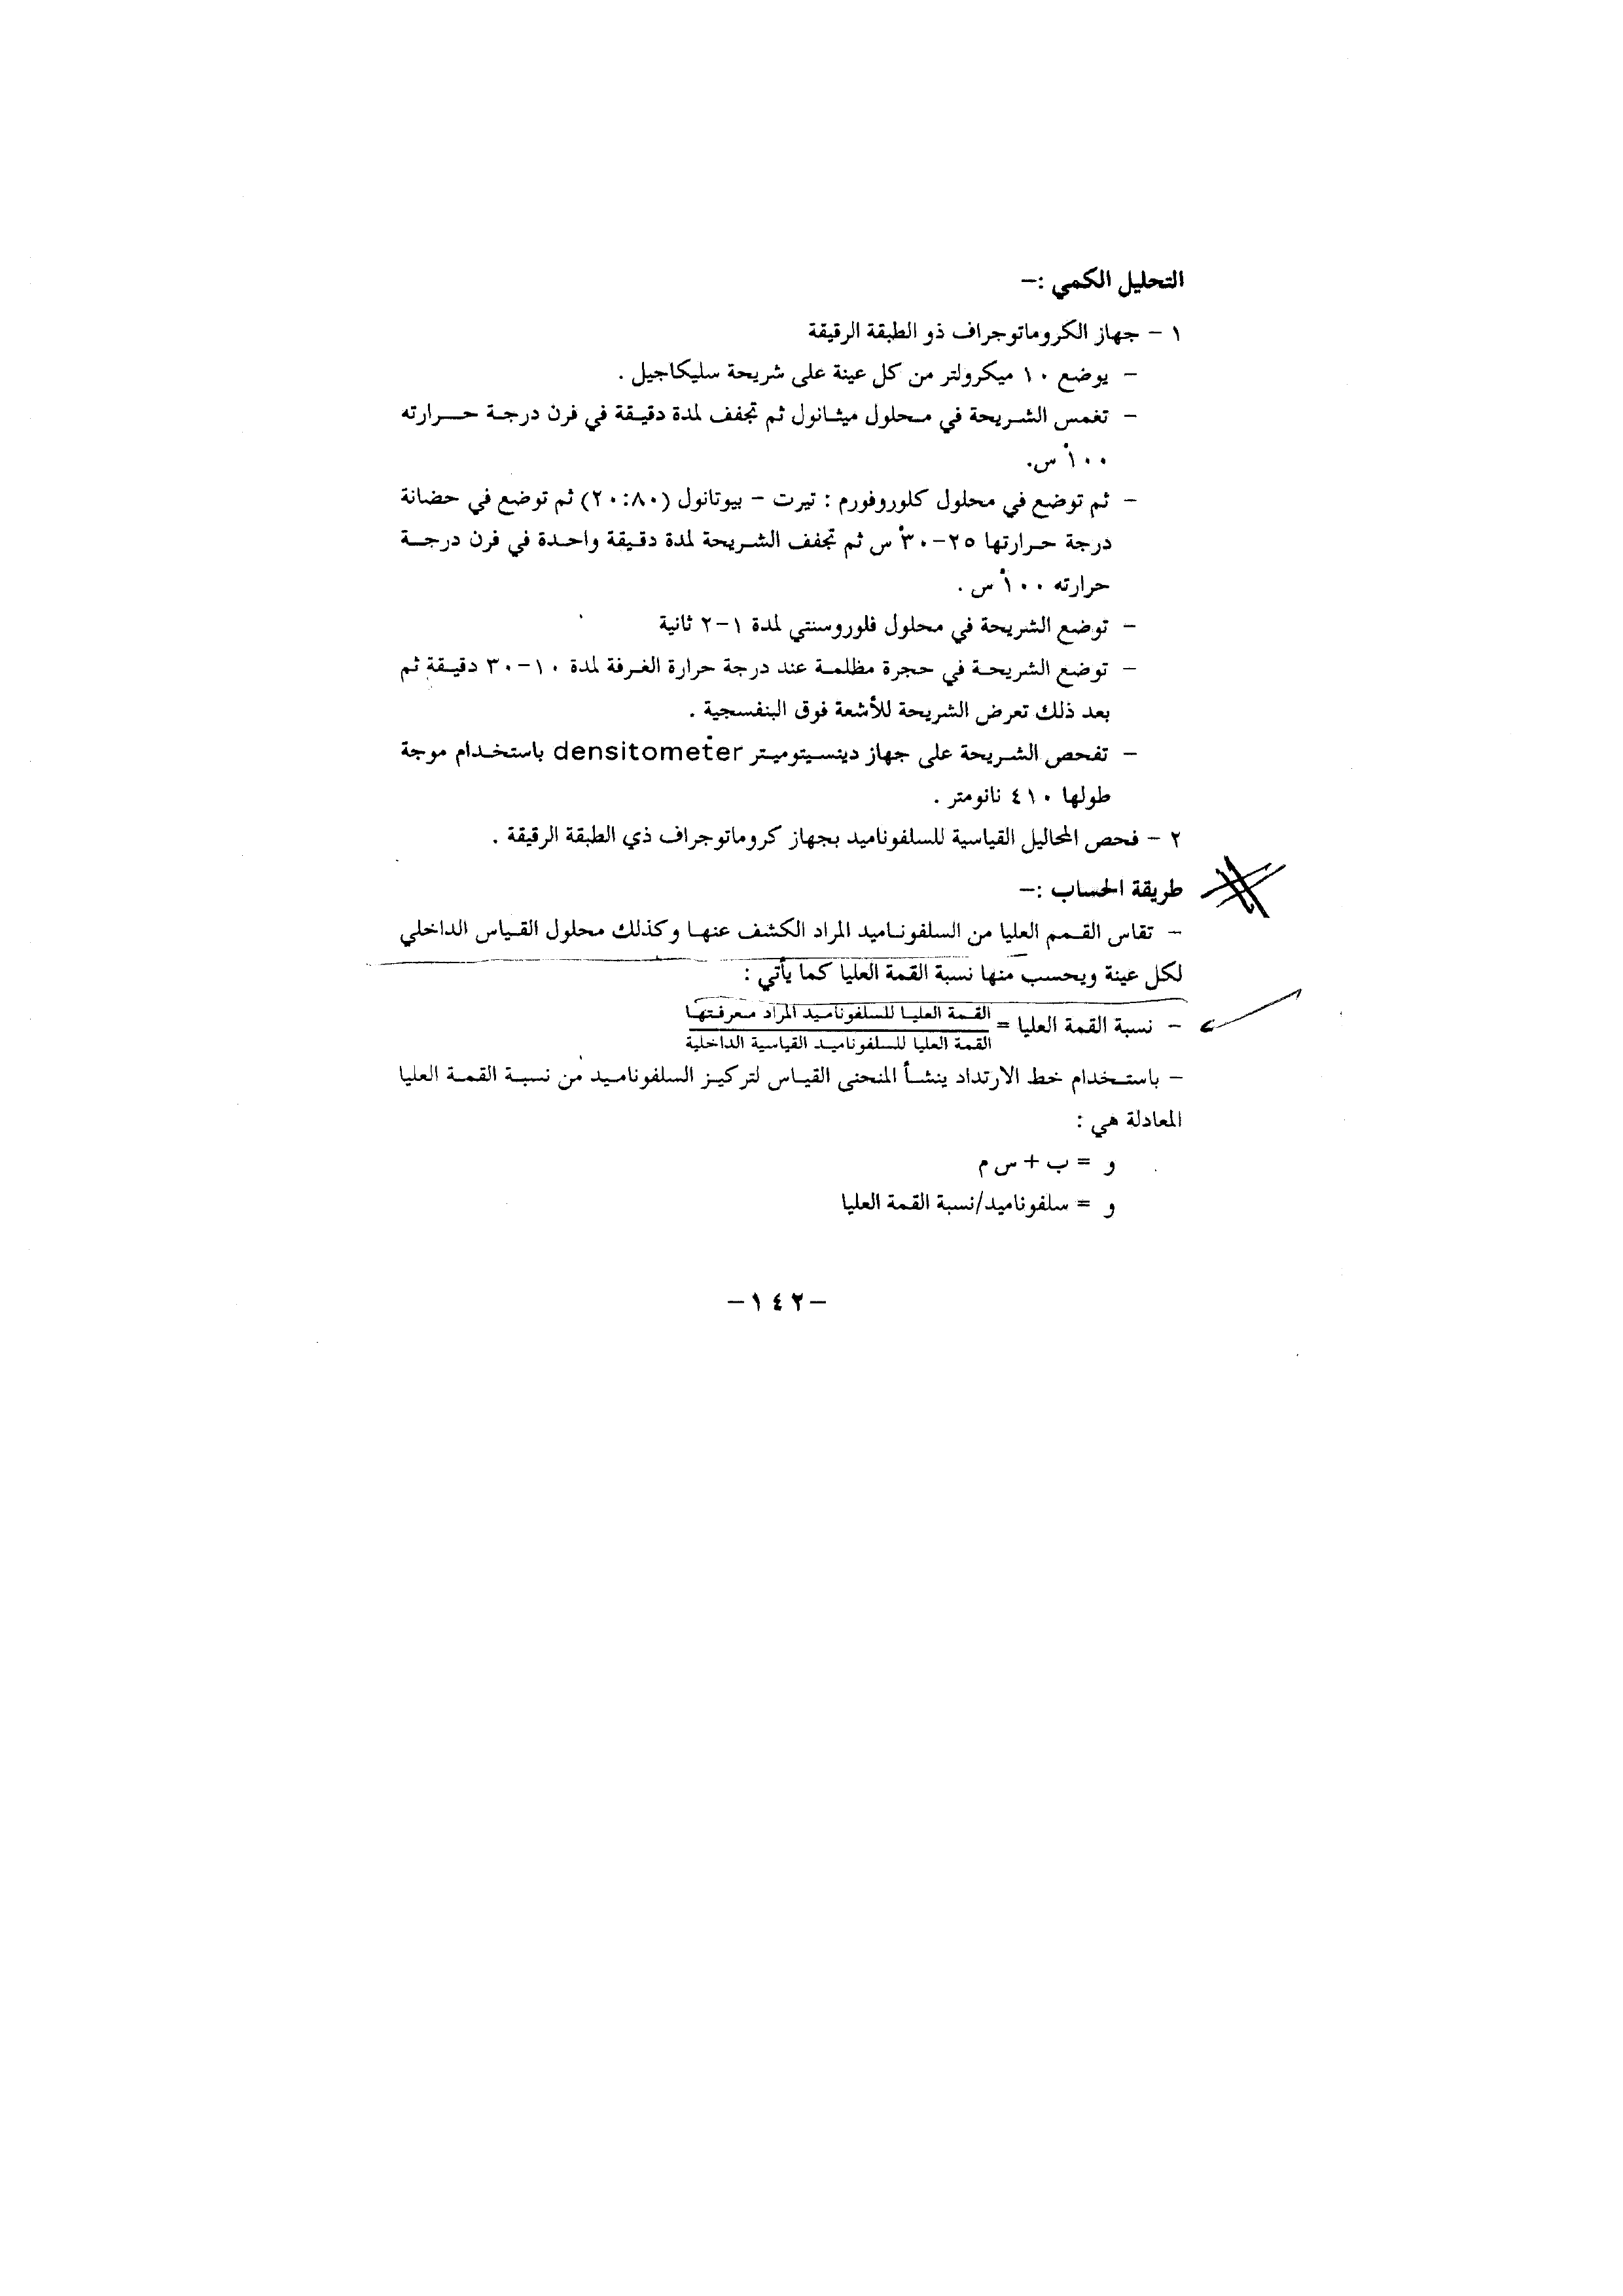 التحليل الكمي :–
١ – جهاز الكروماتوجراف ذو الطبقة الرقيقة
– يوضع ١٠ ميكرولتر من كل عينة على شريحة سليكاجيل .
– تغمس الشريحة في محلول ميثانول ثم تجفف لمدة دقيقة في فرن درجة حرارته
١٠٠ْ س.
– ثم توضع في محلول كلوروفورم : تيرت – بيوتانول (٢٠:٨٠) ثم توضع في حضانة
درجة حرارتها ٢٥–٣٠ْ س ثم تجفف الشريحة لمدة دقيقة واحدة في فرن درجة
حرارته ١٠٠ْ س .
– توضع الشريحة في محلول فلوروسنتي لمدة ١–٢ ثانية
– توضع الشريحة في حجرة مظلمة عند درجة حرارة الغرفة لمدة ١٠–٣٠ دقيقة ثم
بعد ذلك تعرض الشريحة للأشعة فوق البنفسجية .
– تفحص الشريحة على جهاز دينسيتوميتر densitometer باستخدام موجة
طولها ٤١٠ نانومتر .
٢ – فحص المحاليل القياسية للسلفوناميد بجهاز كروماتوجراف ذي الطبقة الرقيقة .
طريقة الحساب :–
– تقاس القمم العليا من السلفوناميد المراد الكشف عنها وكذلك محلول القياس الداخلي
لكل عينة ويحسب منها نسبة القمة العليا كما يأتي :
القمة العليا للسلفوناميد المراد معرفتها
– نسبة القمة العليا =
القمة العليا للسلفوناميد القياسية الداخلية
– باستخدام خط الارتداد ينشأ المنحنى القياس لتركيز السلفوناميد من نسبة القمة العليا
المعادلة هي :
و = ب + س م
و = سلفوناميد/نسبة القمة العليا
–١٤٢–